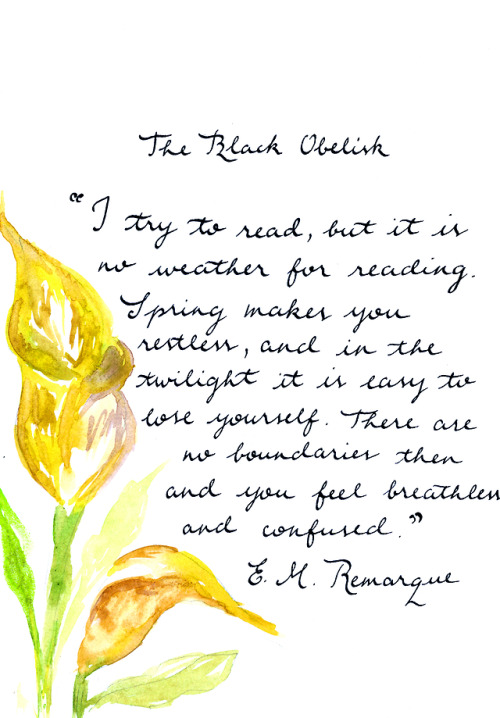 The Black Obelisk
“I try to read, but it is
no weather for reading.
Spring makes you
restless, and in the
twilight it is easy to
lose yourself. There are
no boundaries then
and you feel breathless
and confused.”
E. M. Remarque